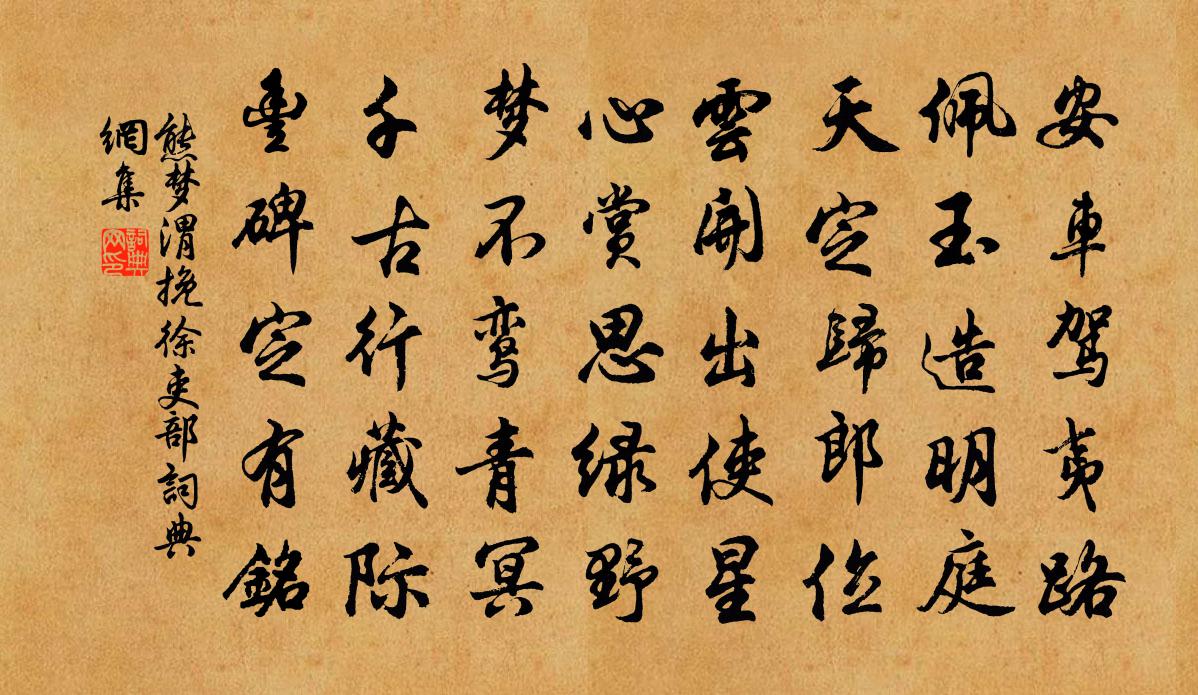 安車駕夷路
佩玉造明庭
天定歸郎位
雲開出使星
心赏思绿野
梦不鸾青冥
千古行藏际
豊碑定有銘
熊梦渭挽徐吏部詞典
網集
詞典網印